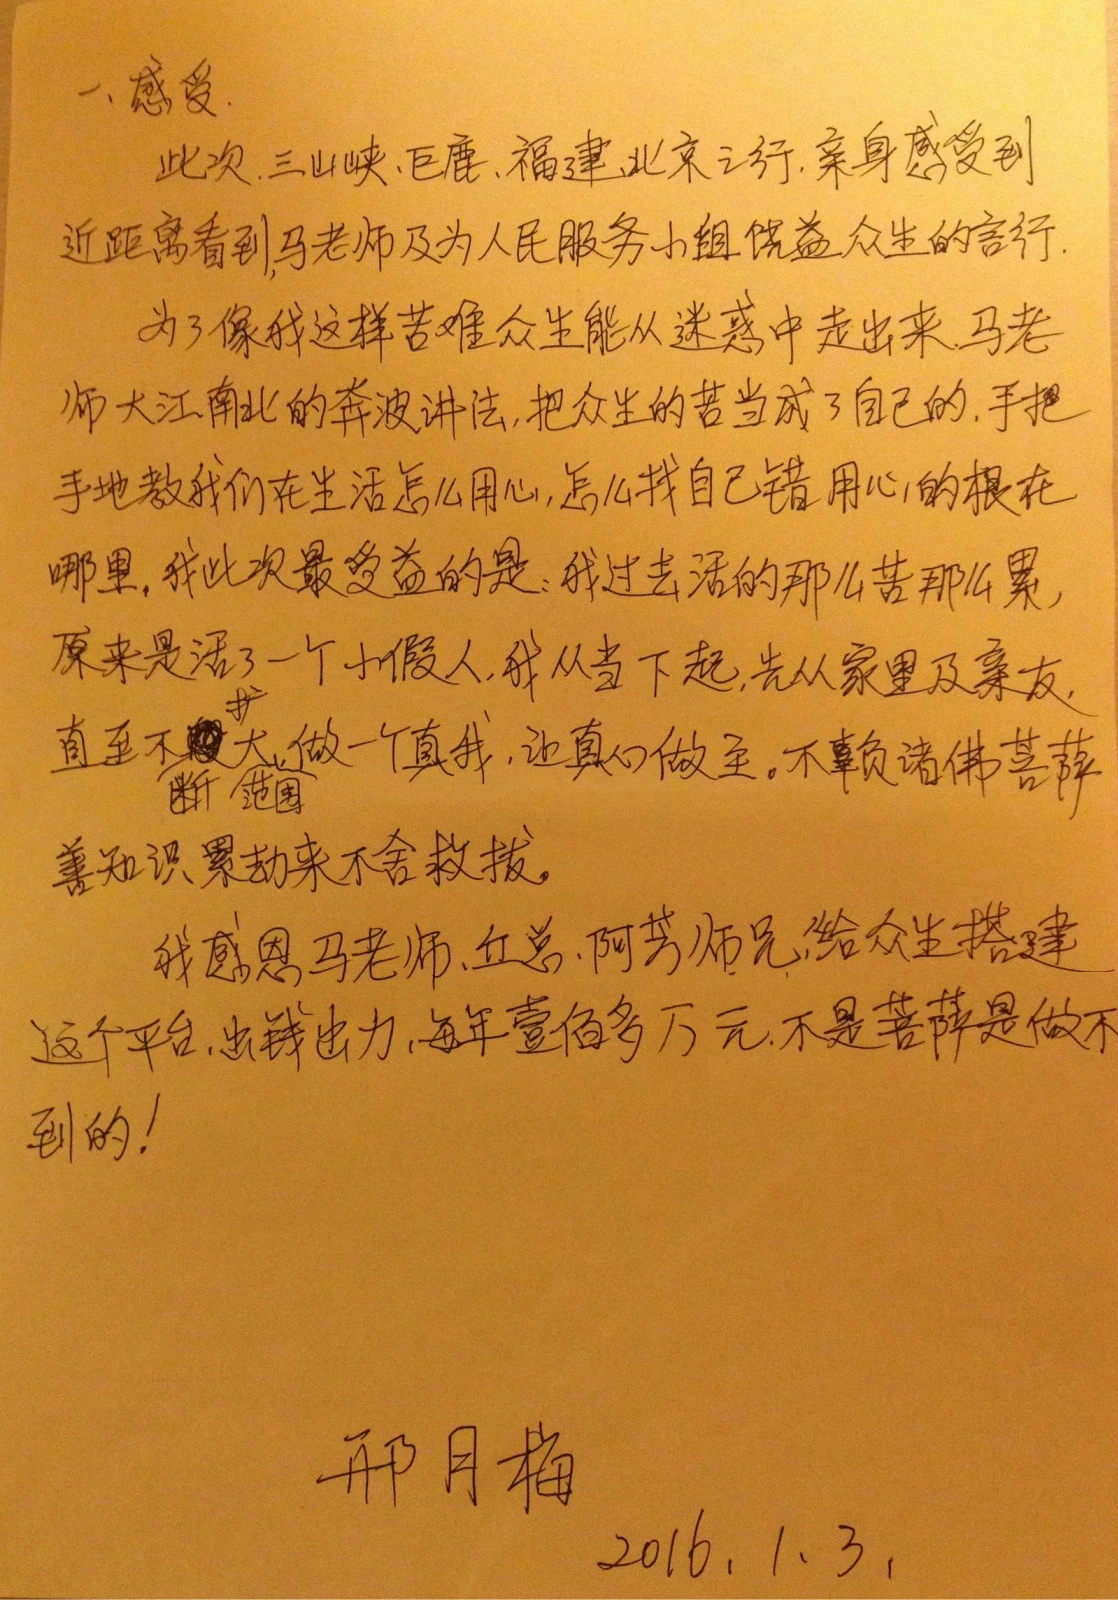 一、感受.
此次、三山峡、巨鹿、福建、北京之行.亲身感受到
近距离看到,马老师及为人民服务小组饶益众生的言行.
为了像我这样苦难众生能从迷惑中走出来.马老
师大江南北的奔波讲法,把众生的苦当成了自己的.手把
手地教我们在生活怎么用心,怎么找自己错用心的根在
哪里。我此次最受益的是:我过去活的那么苦那么累,
原来是活了一个小假人.我从当下起,先从家里及亲友.
直至不断扩大范围、做一个真我,让真心做主。不辜负诸佛菩萨
善知识累劫来不舍救拔。
我感恩马老师、丘总、阿芳师兄,给众生搭建
这个平台.出钱出力,每年壹佰多万元.不是菩萨是做不
到的!
邢月梅
2016.1.3.